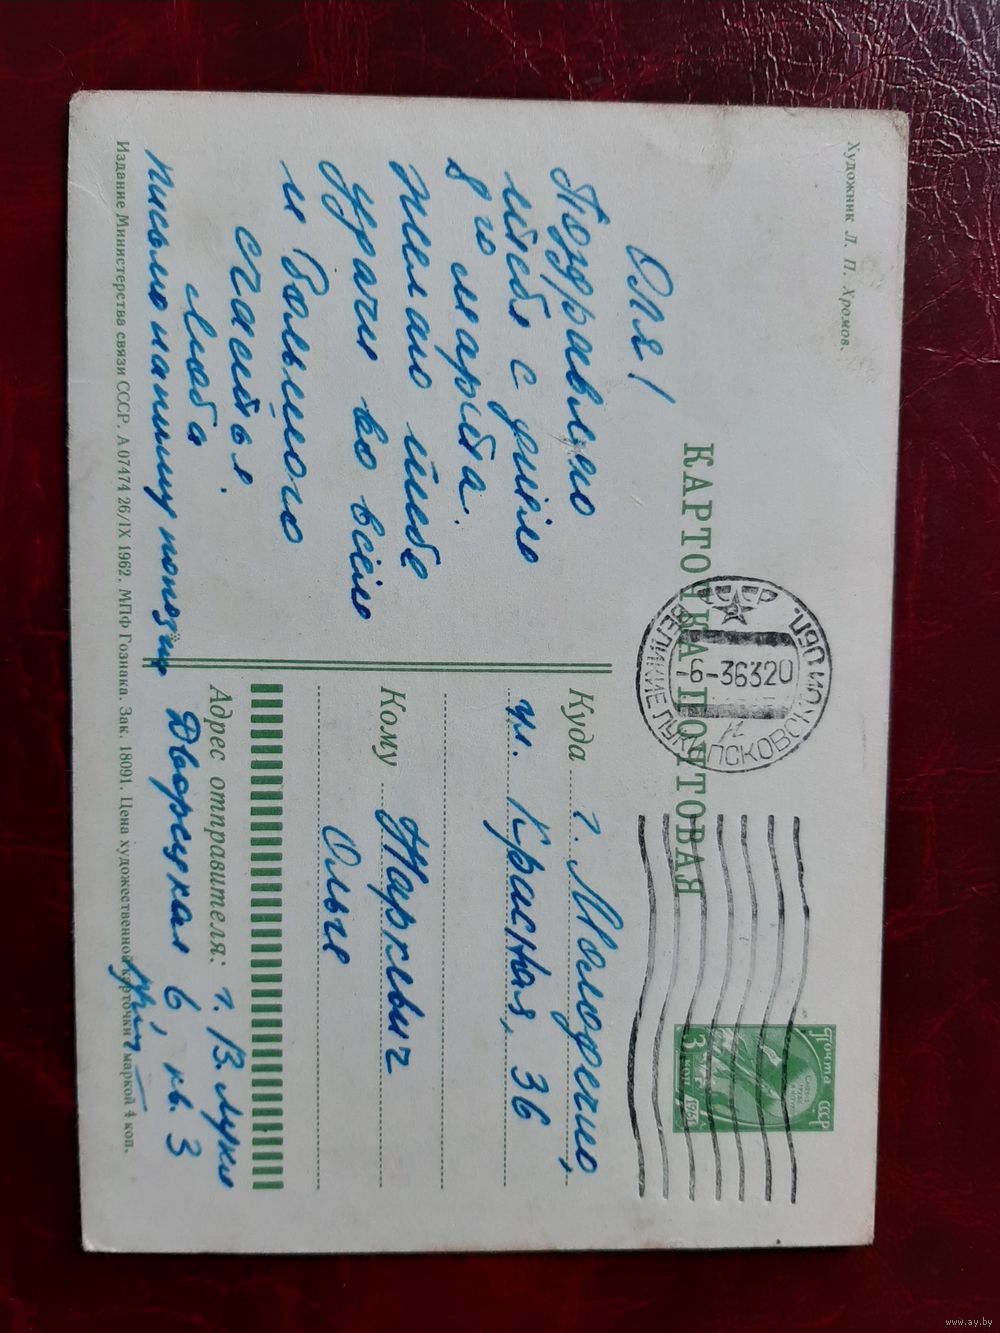 Художник Л. П. Хромов.
КАРТОЧКА ПОЧТОВАЯ
Оля!
Поздравляю
тебя с днём
8го марта.
Желаю тебе
удачи во всём
и большого
счастья.
Люба
письмо напишу попозже
Издание Министерства связи СССР. А 07474 26/IX 1962. МПФ Гознака. Зак. 18091. Цена художественной карточки с маркой 4 коп.
ВЕЛИКИЕ ЛУКИ ПСКОВСКОЙ ОБЛ.
СССР
-6-36320
ПОЧТА СССР
3 КОП
1961
Куда г. Молодечно,
ул. Красная, 36
Кому Наркевич
Ольге
Адрес отправителя: г. В. Луки
Дворецкая 6, кв. 3
www.ay.by